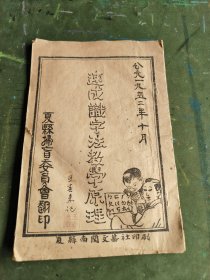 公元一九五二年十月
速成識字法教學原理
夏縣掃盲委員會翻印
夏縣南關文華社印刷